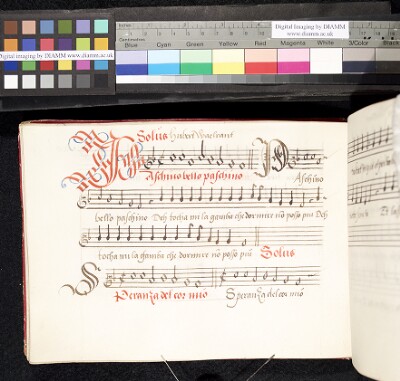 Digital Imaging by DIAMM
www.diamm.ac.uk
Digital Imaging by DIAMM
www.diamm.ac.uk
Blue Cyan Green Yellow Red Magenta White 3/Color Black
Solus Hubert Waelrant
Aschino bello paschino Aschino
bello paschino Deh tocha mi la gamba che dormire nõ posso più Deh
tocha mi la gamba che dormire nõ posso più Solus
Speranza del cor mio Speranza del cor mio